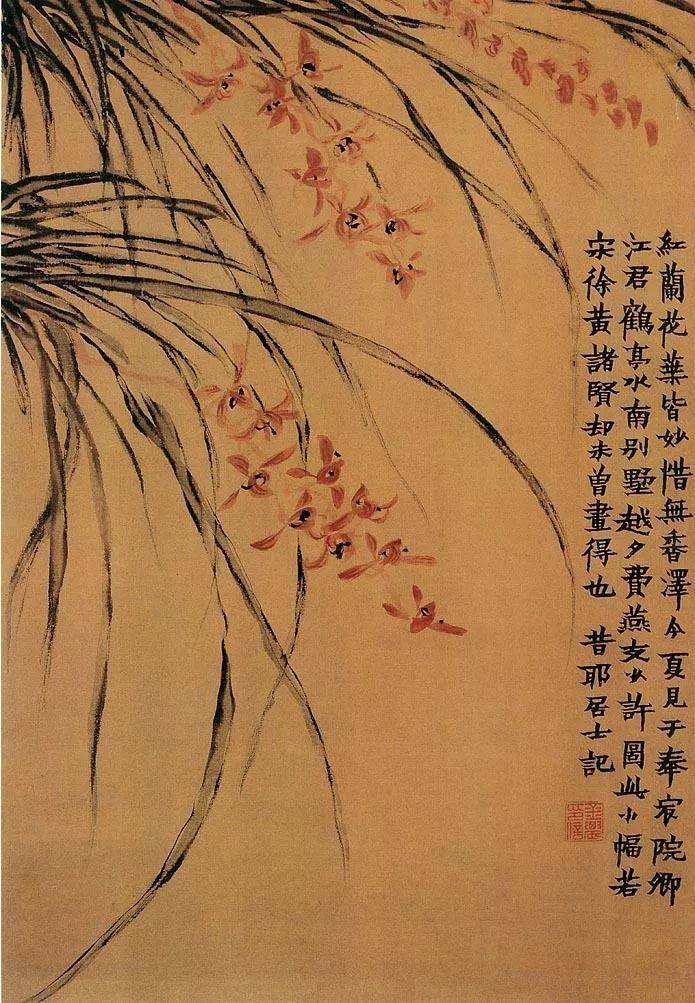 紅蘭花葉皆妙惜無香澤今夏見于奉宸院卿
江君鶴亭水南别墅越夕費燕支少許圖此小幅若
宋徐黃諸賢却未曾畫得也 昔耶居士記
金農印信